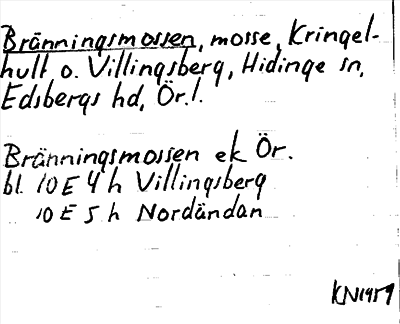 Bränningsmossen, mosse, Kringel-
hult o. Villingsberg, Hidinge sn,
Edsbergs hd, Ör.l.
Bränningsmossen ek Ör.
bl. 10E 4h Villingsberg
10E 5h Nordändan
KN1959